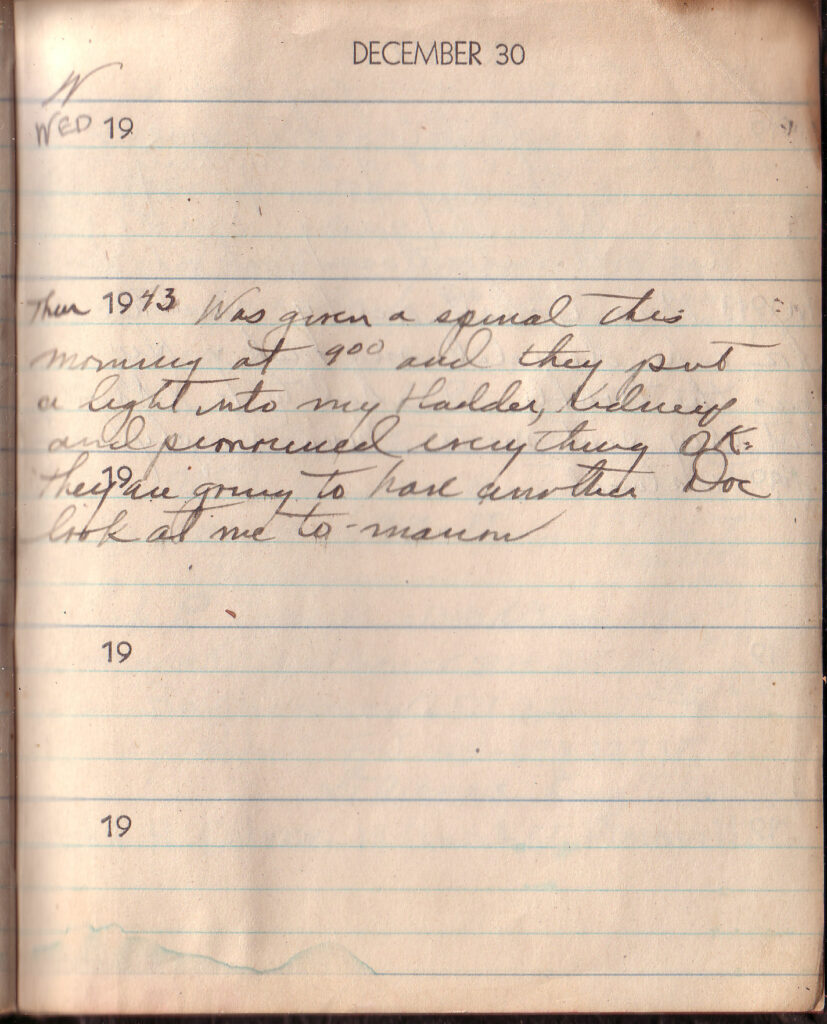 DECEMBER 30
W
WED 19
Thur 1943 Was given a spinal this
morning at 900 and they put
a light into my bladder, kidneys
and pronounced everything OK.
19
they are going to have another Doc
look at me to-morrow
19
19